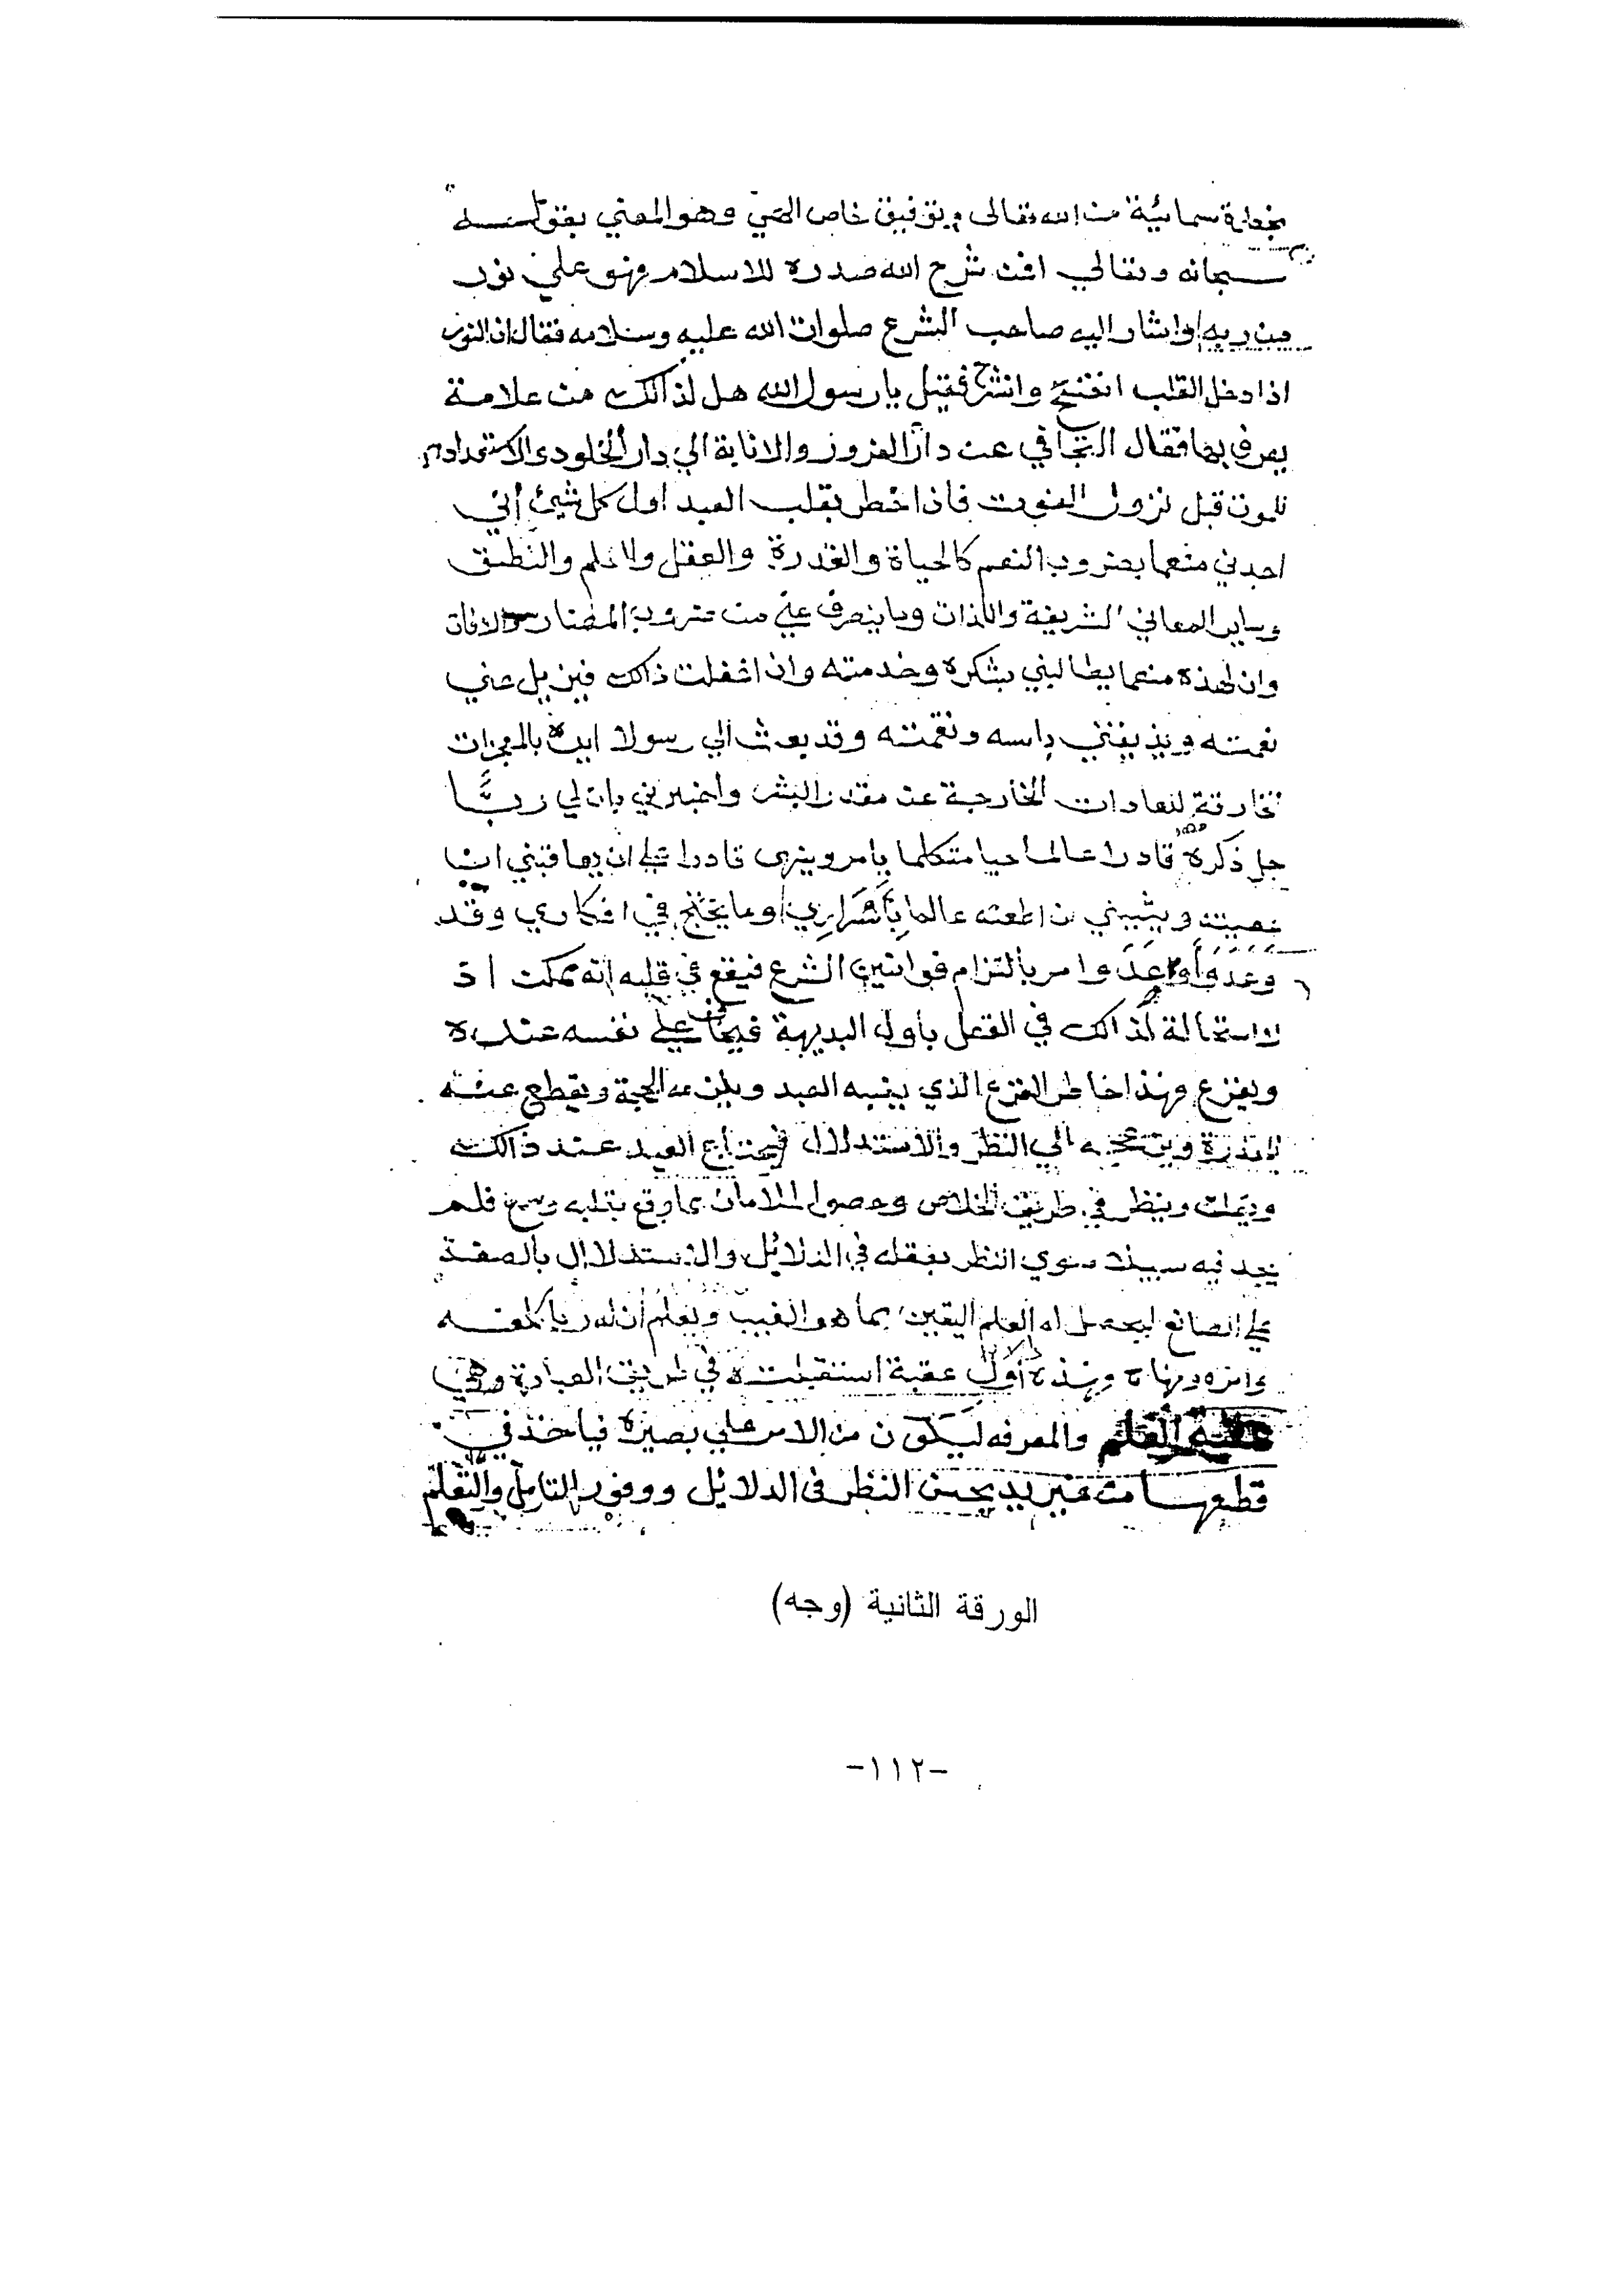 بخطرة سمائية من الله تعالى وتوفيق خاص الهي وهو المعني بقوله
سبحانه وتعالي افمن شرح الله صدره للاسلام فهو علي نور
من ربه واشار اليه صاحب الشرع صلوات الله عليه وسلامه فقال ان النور
اذا دخل القلب انفتح وانشرح فقيل يا رسول الله هل لذالك من علامة
يعرف بها فقال التجافي عن دار الغرور والانابة الي دار الخلود والاستعداد
للموت قبل نزول الموت فاذا خطر بقلب العبد اول كل شيئ أني
اجدني منعما بضروب النعم كالحياة والقدرة والعقل والنطق
وساير المعاني الشريفة واللذات وما ينصرف عني من ضروب المضار والافات
وان لهذه منعما يطالبني بشكره وخدمته وان اغفلت ذالك فيزيل عني
نعمته ويذيقني باسه ونقمته وقد بعث الي رسولا ايده بالمعجزات
الخارقة للعادات الخارجة عن مقدور البشر واخبرني بان لي ربًّا
جل ذكره قادرا عالما حيا متكلما يامر وينهى قادرا علي ان يعاقبني ان
عصيته ويثيبني ان اطعته عالما بأسراري وما يختلج في افكاري وقد
وعد وأوعد وامر بالتزام قوانين الشرع فيقع في قلبه انه ممكن اذ
لا استحالة لذالك في العقل بأول البديهة فيخاف علي نفسه عنده
ويفزع فهذا خاطر الفزع الذي ينبه العبد ويلزمه الحجة ويقطع عنه
المعذرة ويزعجه الي النظر والاستدلال فيهتاج العبد عند ذالك
وينظر في طريق الخلاص وحصول الامان مما وقع بقلبه وسمع فلم
يجد فيه سبيلا سوي النظر بعقله في الدلائل والاستدلال بالصنعة
علي الصانع ليحصل له العلم اليقين بما هو الغيب ويعلم أن له ربا كلفه
وامره ونهاه فهذه أول عقبة استقبلته في طريق العبادة وهي
عقبة العلم والمعرفه ليكون من الامر علي بصيرة فياخذ في
قطعها من غير بد بحسن النظر في الدلايل ووفور التامل والتعلم
الورقة الثانية (وجه)
-١١٢-